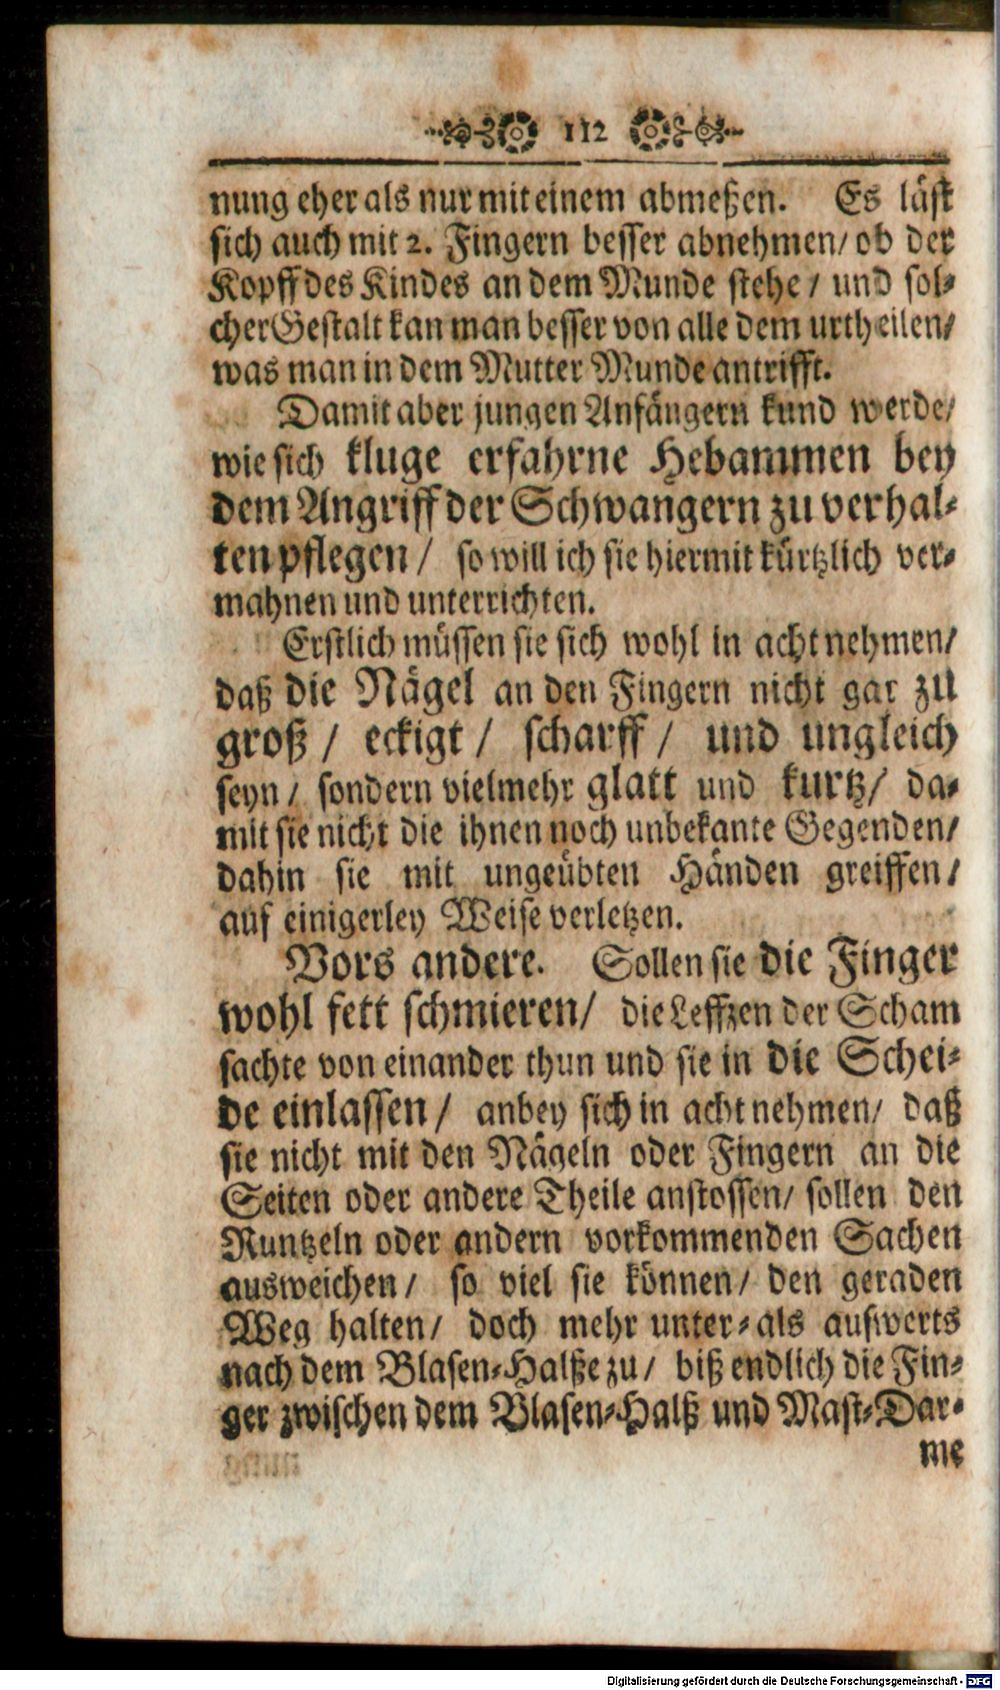 112
nung eher als nur mit einem abmeßen. Es läst
sich auch mit 2. Fingern besser abnehmen/ ob der
Kopff des Kindes an dem Munde stehe/ und sol-
cher Gestalt kan man besser von alle dem urtheilen/
was man in dem Mutter Munde antrifft.
Damit aber jungen Anfängern kund werde/
wie sich kluge erfahrne Hebammen bey
dem Angriff der Schwangern zu verhal-
ten pflegen/ so will ich sie hiermit kürtzlich ver-
mahnen und unterrichten.
Erstlich müssen sie sich wohl in acht nehmen/
daß die Nägel an den Fingern nicht gar zu
groß/ eckigt/ scharff/ und ungleich
seyn/ sondern vielmehr glatt und kurtz/ da-
mit sie nicht die ihnen noch unbekante Gegenden/
dahin sie mit ungeübten Händen greiffen/
auf einigerley Weise verletzen.
Vors andere. Sollen sie die Finger
wohl fett schmieren/ die Leffzen der Scham
sachte von einander thun und sie in die Schei-
de einlassen/ anbey sich in acht nehmen/ daß
sie nicht mit den Nägeln oder Fingern an die
Seiten oder andere Theile anstossen/ sollen den
Runtzeln oder andern vorkommenden Sachen
ausweichen/ so viel sie können/ den geraden
Weg halten/ doch mehr unter-als aufwerts
nach dem Blasen-Halße zu/ biß endlich die Fin-
ger zwischen dem Blasen-Halß und Mast-Dar-
me
Digitalisierung gefördert durch die Deutsche Forschungsgemeinschaft - DFG